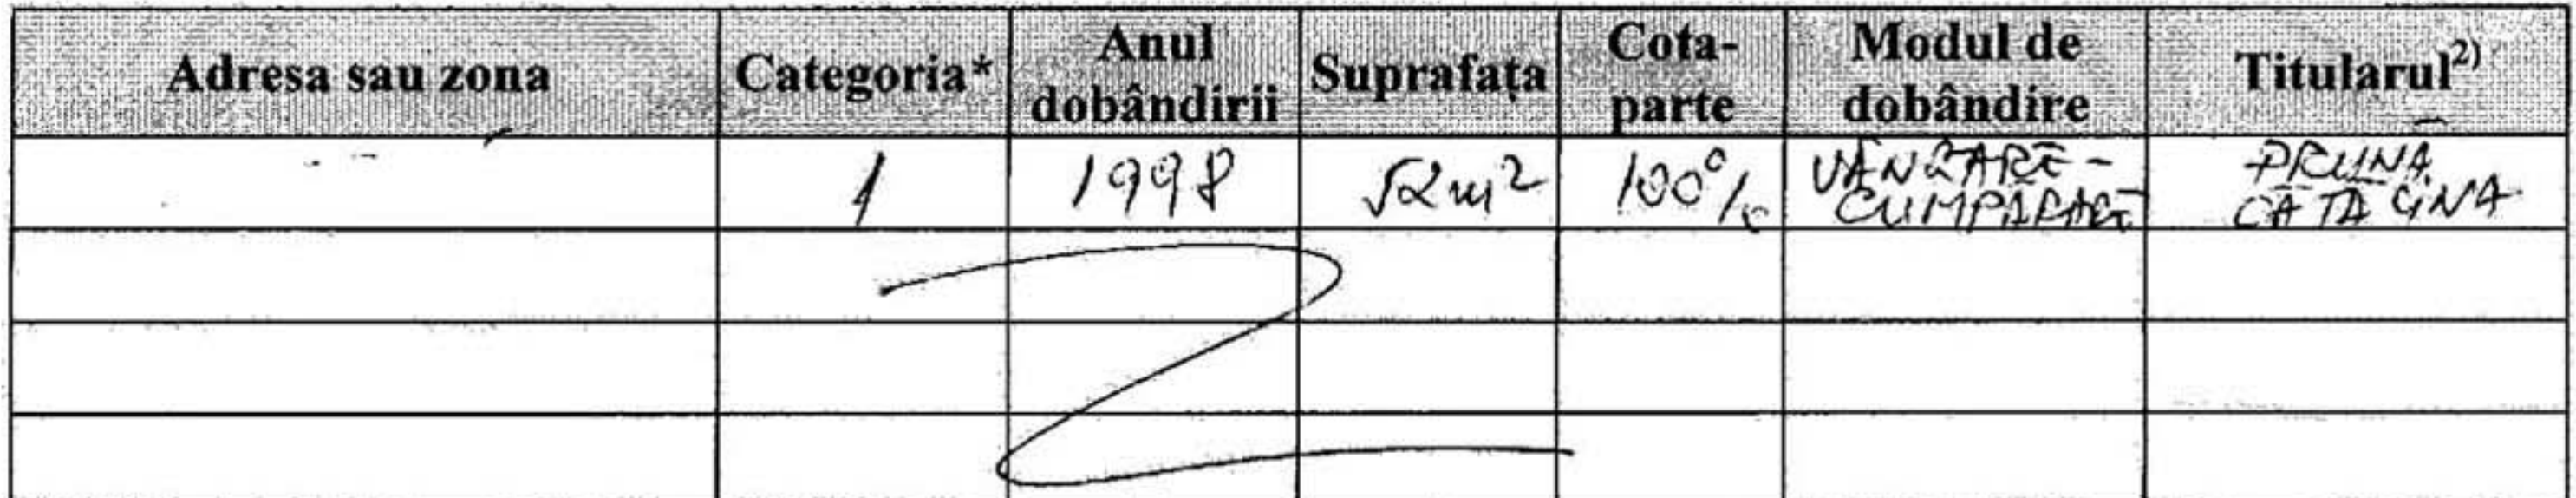 Adresa sau zona Categoria* Anul dobândirii Suprafața Cota-parte Modul de dobândire Titularul2)
1 1998 52 m2 100% VÂNZARE-
CUMPĂRARE
PRUNĂ
CĂTĂLINA